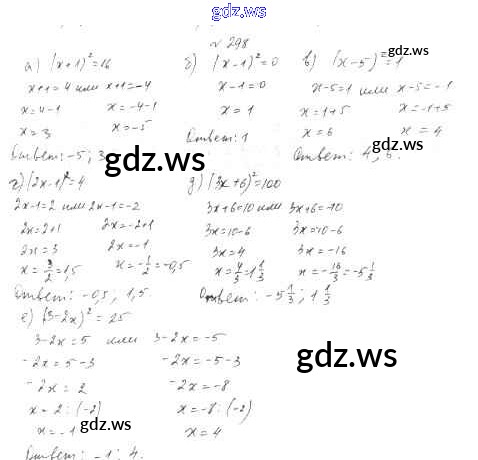 gdz.ws
№ 298
а) (x+1)²=16
x+1=4 или x+1=-4
x=4-1 x=-4-1
x=3 x=-5
Ответ: -5; 3
б) (x-1)²=0
x-1=0
x=1
Ответ: 1
в) (x-5)²=1
x-5=1 или x-5=-1
x=1+5 x=-1+5
x=6 x=4
Ответ: 4; 6.
gdz.ws
gdz.ws
г) (2x-1)²=4
2x-1=2 или 2x-1=-2
2x=2+1 2x=-2+1
2x=3 2x=-1
x=3/2=1,5 x=-1/2=-0,5
Ответ: -0,5; 1,5
д) (3x+6)²=100
3x+6=10 или 3x+6=-10
3x=10-6 3x=-10-6
3x=4 3x=-16
x=4/3=1 1/3 x=-16/3=-5 1/3
Ответ: -5 1/3; 1 1/3
е) (3-2x)²=25
3-2x=5 или 3-2x=-5
-2x=5-3 -2x=-5-3
-2x=2 -2x=-8
x=2:(-2) x=-8:(-2)
x=-1 x=4
Ответ: -1; 4.
gdz.ws
gdz.ws